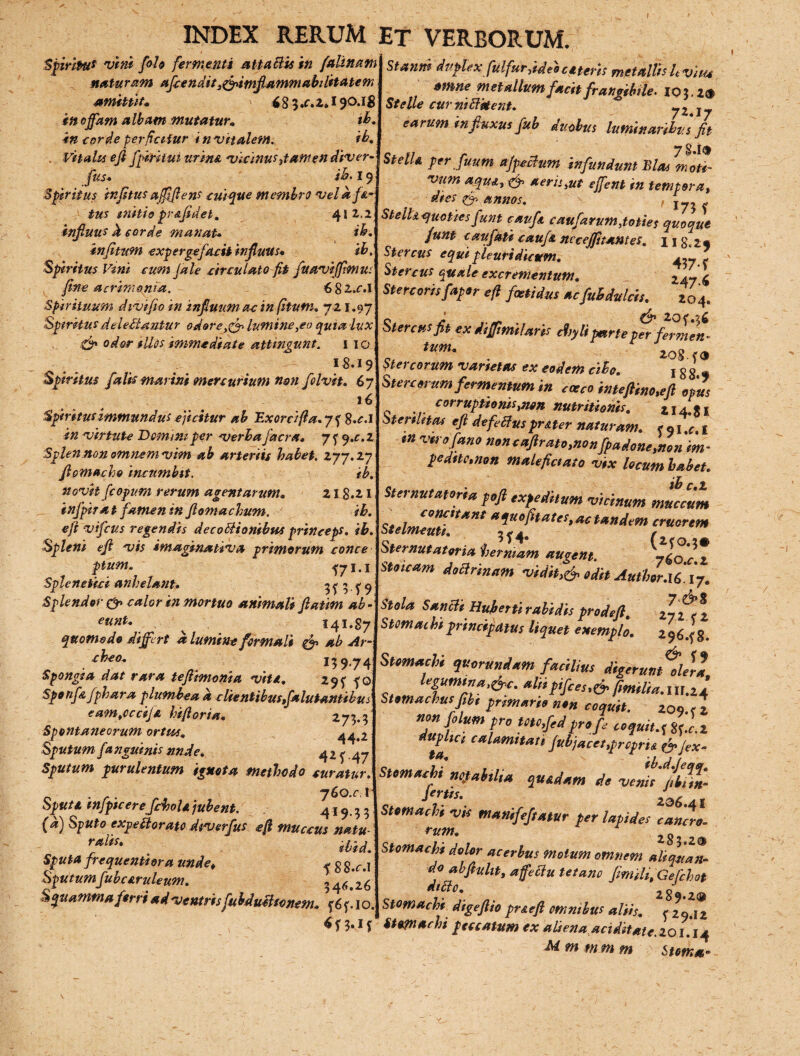 INDEX RERUM ET VERBORUM.
Spiritus vini solo fermenti attactis in salinam
naturam ascendit,&inflammabilitatem
amittit. 683.c.2.190.18
in offam albam mutatur. ib.
in corde perficitur in vitalem. ib.
Vitalis est spiritui urinæ vicinus,tamen diver-
sus. ib.19
Spiritus insitus assistens cuique membro vel à fæ-
tus initio præsidet. 412.2
influus à corde manat. ib.
insitum expergefacit influus. ib.
Spiritus Vini cum sale circulato fit suavissimus
sine acrimonia. 682.c.1
Spirituum divisio in influum ac in situm. 721.97
Spiritus delectantur odore,& lumine,eo quia lux
& odor illos immediate attingunt. 110
18.19
Spiritus salis marini mercurium non solvit. 67
16
Spiritus immundus ejicitur ab Exorcista. 758.c.1
in virtute Domini per verba sacra. 759.c.2
Splen non omnem vim ab arteriis habet. 277.27
stomacho incumbit. ib.
novit scopum rerum agentarum. 218.21
inspirat famem in stomachum. ib.
est viscus regendis decoctionibus princeps. ib.
Spleni est vis imaginativa primorum conce
ptum. 571.1
Splenetici anhelant. 353.59
Splendor & calor in mortuo animali statim ab-
eunt. 141.87
quomodo differt à lumine formali & ab Ar-
cheo. 139.74
Spongia dat rara testimonia vitæ. 295 50
Sponsa sphara plumbea à clientibus,salutantibus
eam,occisa historia. 273.3
Spontaneorum ortus. 44.2
Sputum sanguinis unde. 425.47
Sputum purulentum ignota methodo curatur.
760.c.1
Sputa inspicere schola jubent. 419.33
(a) Sputo expectorato diversus est muccus natu-
ralis. ibid.
Sputa frequentiora unde. 588.c.1
Sputum subcæruleum. 346.26
Squamma ferri ad ventris subductionem. 565.10.
653.15
Stanni duplex sulfur,ideo cæteris metallis levius
omne metallum facit frangibile. 103.20
Stelle cur nictitent. 72.17
earum influxus sub duobus luminaribus fit
78.10
Stellæ per suum aspectum infundunt Blas moti-
vum aquæ, & aeris,ut essent in tempora,
dies & annos. 173 5
Stellæ quoties sunt causæ causarum,toties quoque
sunt causati causæ necessitantes. 118.29
Stercus equi pleuridicum. 437.5
Stercus quale excrementum. 247.6
Stercoris sapor est fœtidus ac subdulcis. 204.
& 205.36
Stercus fit ex dissimilaris chyli parte per fermen-
tum. 208.50
Stercorum varietas ex eodem cibo. 188.9
Stercorum fermentum in cœco intestino,est opus
corruptionis,non nutritionis. 214.81
Sterilitas est defectus præter naturam. 591.c.1
in viro sano non castrato,non spadone,non im-
pedito,non maleficiato vix locum habet.
ib c.2
Sternutatoria post expeditum vicinum muccum
concitant aquositates,ac tandem cruorem
Stelmeuti. 354. (250.30
Sternutatoria herniam augent. 760.c.2
Stoicam doctrinam vidit,& odit Author.16.17.
7.&8
Stola Sancti Huberti rabidis prodest. 272 52
Stomachi principatus liquet exemplo. 296.58.
& 59
Stomachi quorundam facilius digerunt olera,
legumina,&c. alii pisces,& similia.111.24
Stomachus sibi primario non coquit. 209.52
non solum pro toto,sed pro se coquit.585.c.2
duplici calamitati subjacet,propriæ & sex-
ta. ib.d.seqq.
Stomachi notabilia quædam de venis sibi in-
sertis. 206.41
Stomachi vis manifestatur per lapides cancro-
rum. 283.20
Stomachi dolor acerbus motum omnem aliquan-
do abstulit, affectu tetano simili, Geschot
dicto. 289.20
Stomachi digestio præest omnibus aliis. 529.12
Stomachi peccatum ex aliena aciditate.201.14
M m m m m Stoma-